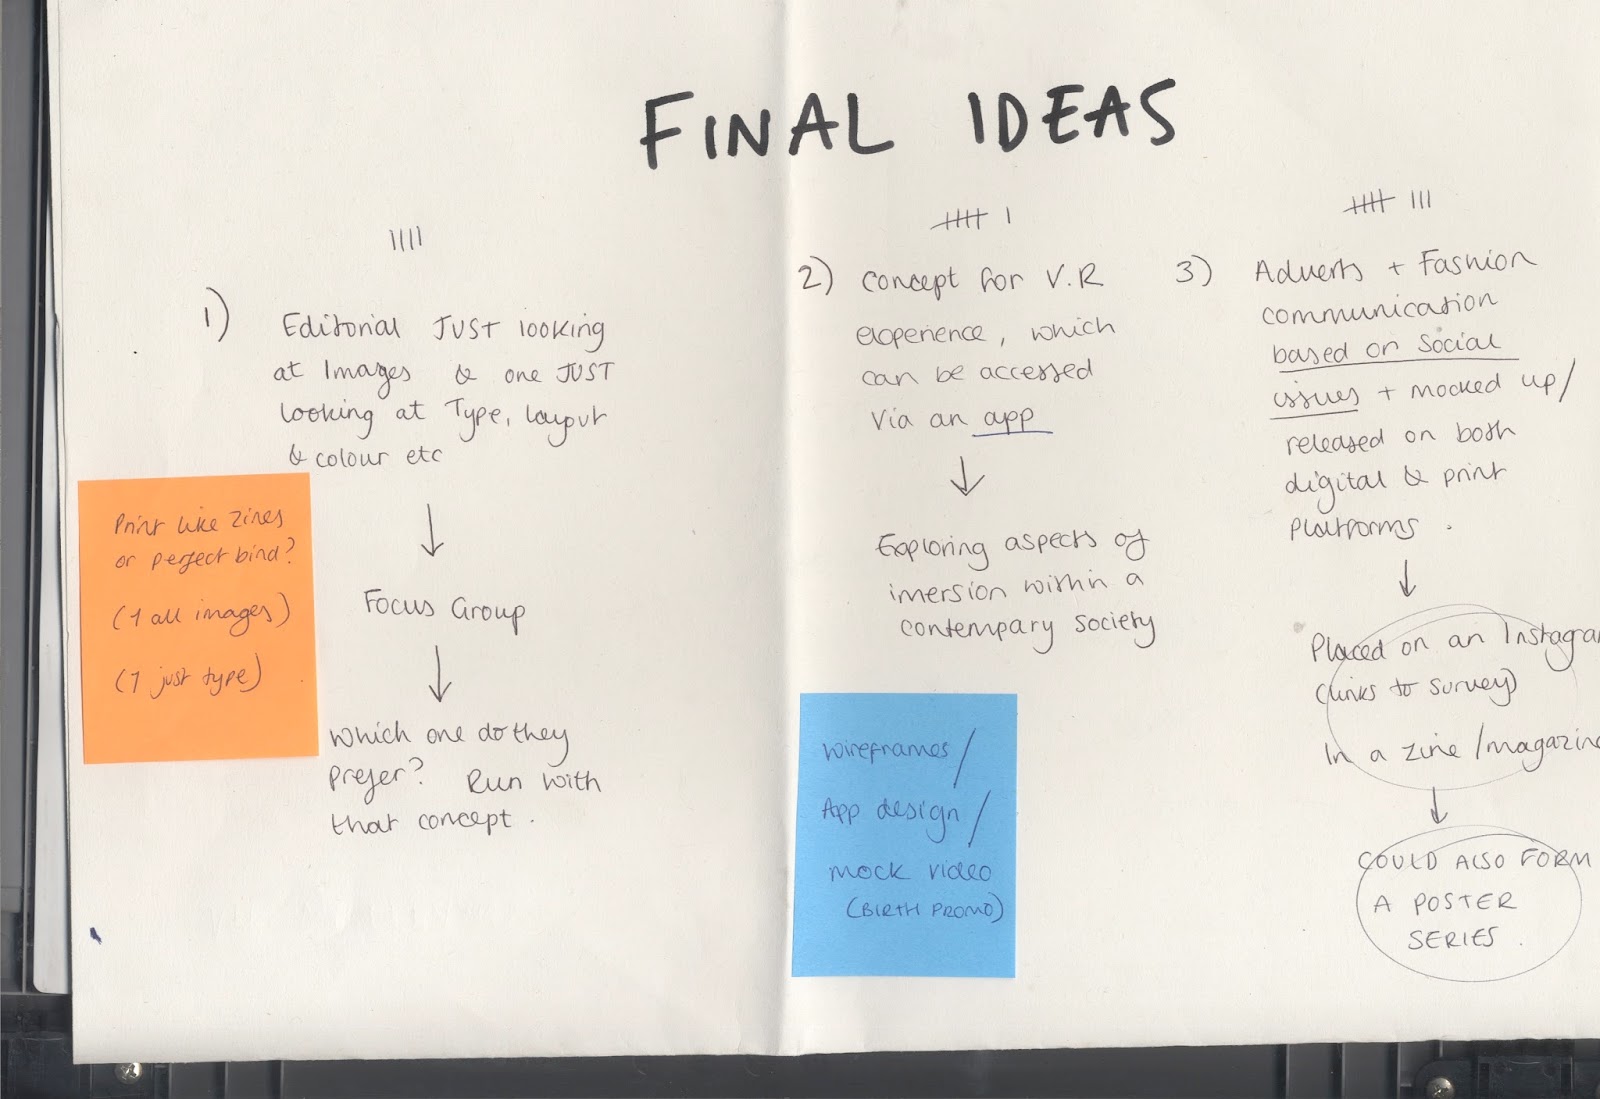 FINAL IDEAS
1)
Editorial JUST looking
at Images & one JUST
looking at Type, layout
& colour etc
Focus Group
Which one do they
prefer? Run with
that concept.
Print like zines
or perfect bind?
(1 all images)
(1 just type)
2) Concept for V.R
experience, which
can be accessed
via an app
Exploring aspects of
imersion within a
contempary society
wireframes/
App design/
mock video
(BIRTH PROMO)
3) Adverts + Fashion
communication
based on social
issues + mocked up/
released on both
digital & print
platforms.
Placed on an Instagra
(links to survey)
In a zine/magazine
COULD ALSO FORM
A POSTER
SERIES.